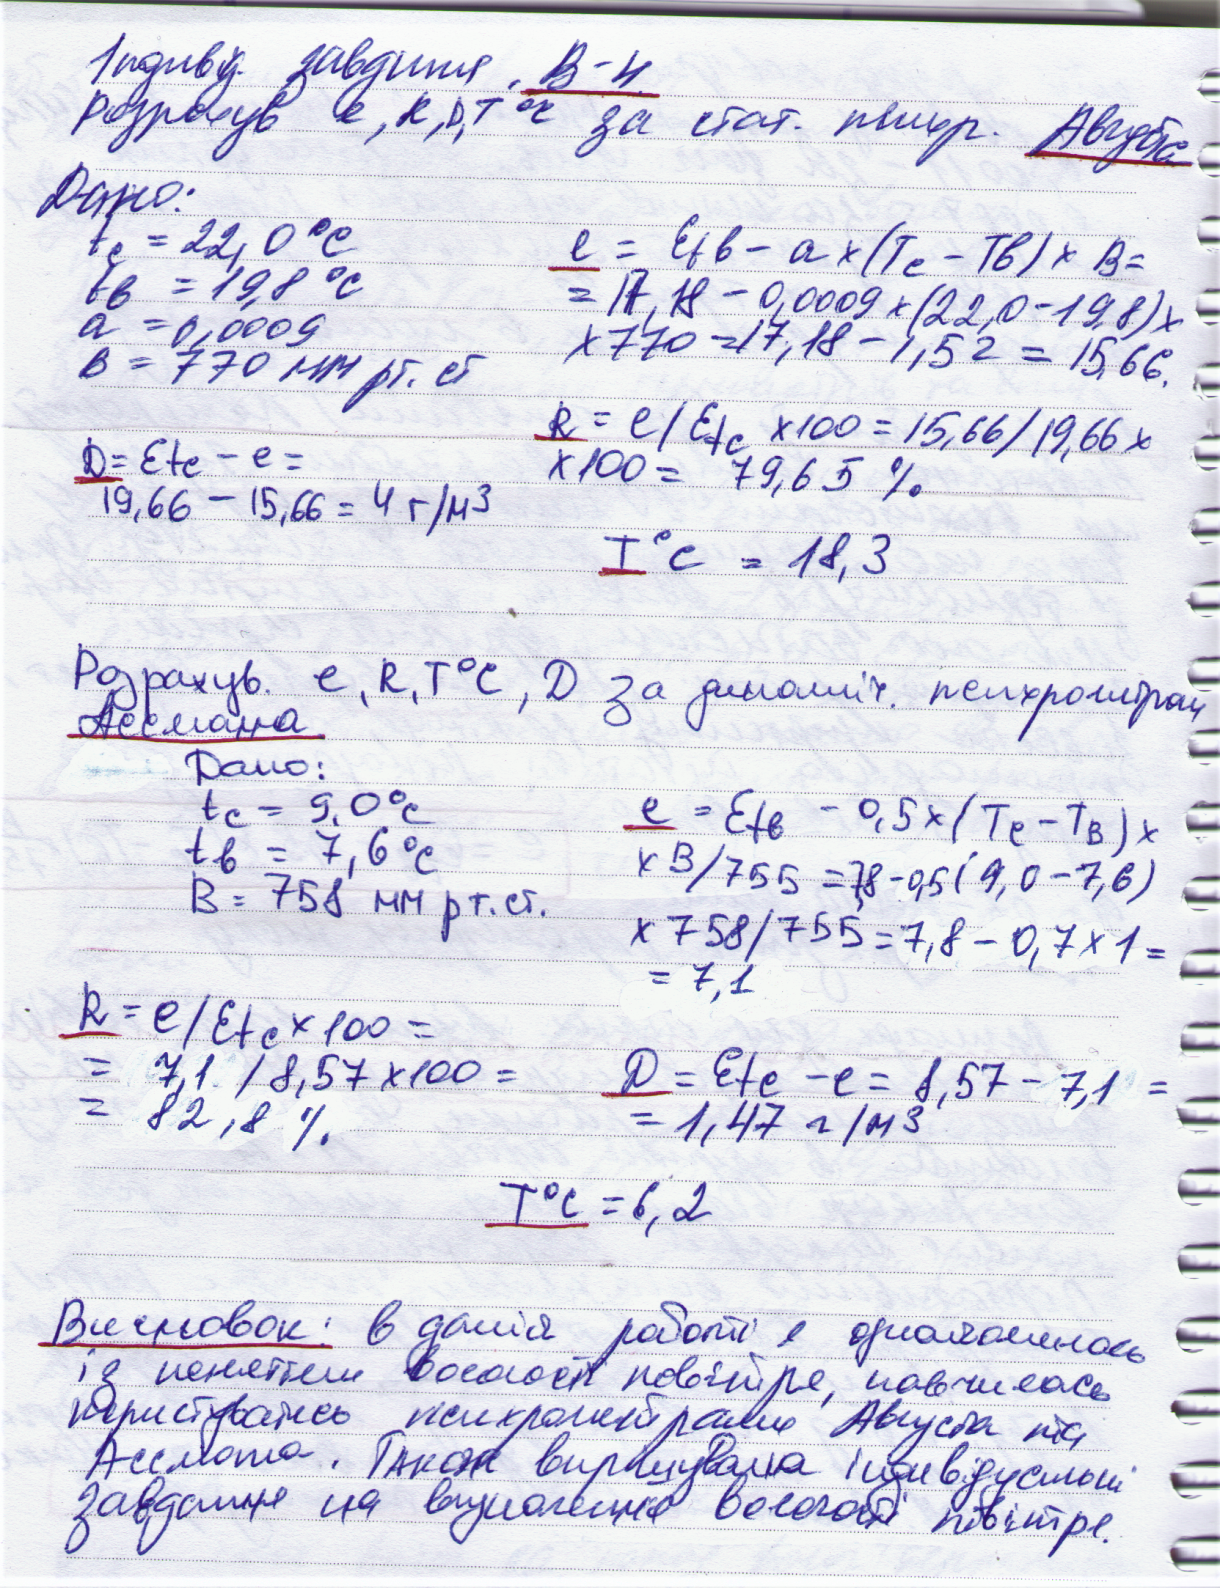 Індивід. завдання. В-4.
Розрахув e, R, D, T°C за стат. психр. Августа
Дано:
tc = 22,0°C
tв = 19,8°C
a = 0,0009
B = 770 мм рт. ст
e = Etв - a × (Tc - Tв) × B =
= 17,18 - 0,0009 × (22,0 - 19,8) ×
× 770 = 17,18 - 1,52 = 15,66.
R = e / Etc × 100 = 15,66 / 19,66 ×
× 100 = 79,65 %.
D = Etc - e =
19,66 - 15,66 = 4 г/м3
T°C = 18,3
Розрахув. e, R, T°C, D за динаміч. психрометром
Ассмана
Дано:
tc = 9,0°C
tв = 7,6°C
B = 758 мм рт. ст.
e = Etв - 0,5 × (Tc - Tв) ×
× B/755 = 7,8 - 0,5 (9,0 - 7,6)
× 758/755 = 7,8 - 0,7 × 1 =
= 7,1
R = e / Etc × 100 =
= 7,1 / 8,57 × 100 =
= 82,8 %.
D = Etc - e = 8,57 - 7,1 =
= 1,47 г/м3
T°C = 6,2
Висновок: в даній роботі я ознайомилась
із поняттям вологості повітря, навчилась
користуватись психрометрами Августа та
Ассмана. Також вирішувала індивідуальні
завдання на визначення вологості повітря.